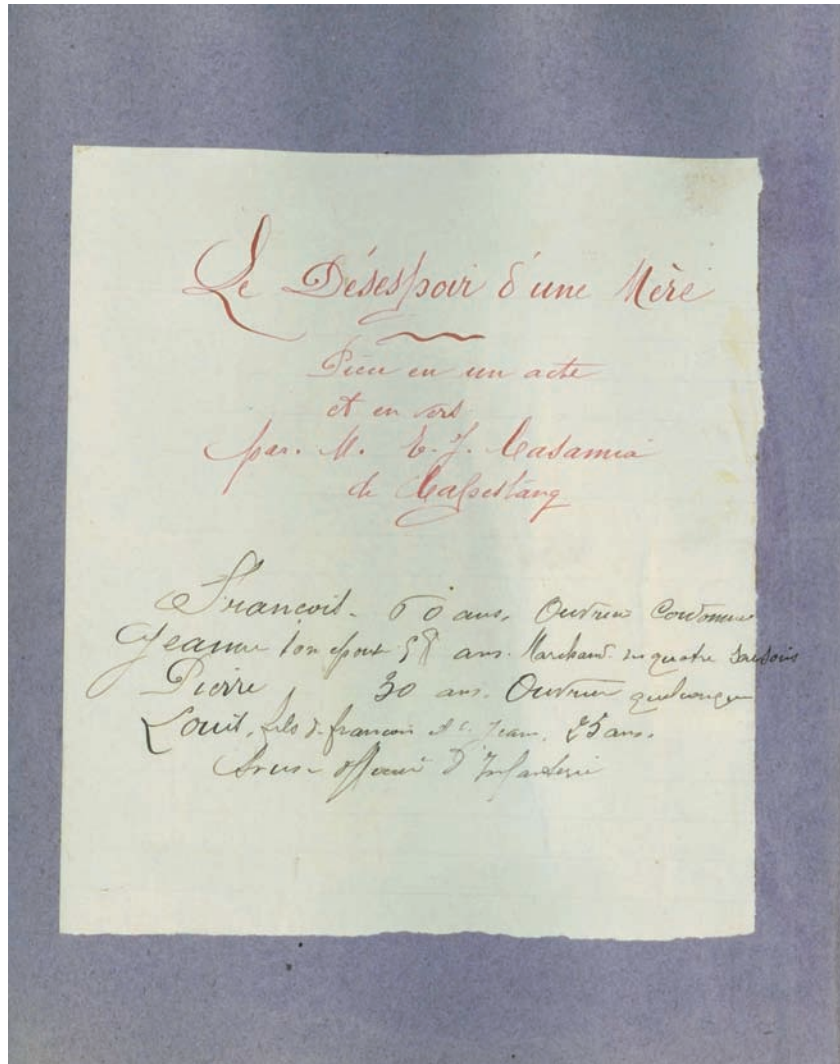 Le Désespoir d'une Mère
Pièce en un acte
et en vers
par. M. E. J. Casamia
de Capestang
François. 60 ans. Ouvrier Cordonnier
Jeanne son épouse 58 ans. Marchande des quatre saisons
Pierre 30 ans. Ouvrier quelconque
Louis, fils de françois et de Jeanne, 25 ans.
Sous-officier d'Infanterie